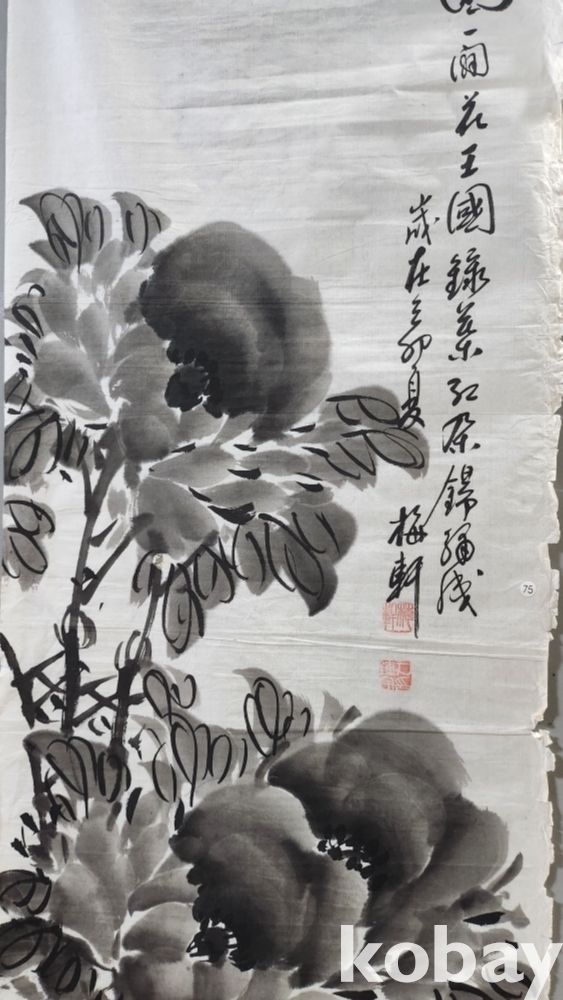 一花王國綠葉紅朶錦繡成
歲在乙卯夏
梅軒
75
kobay